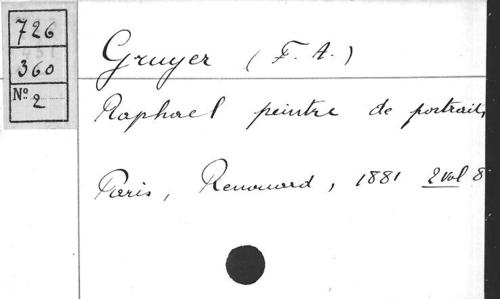 726
360
Nº 2
Gruyer (F. A.)
Raphael peintre de portraits
Paris, Renouard, 1881 2 vol 8